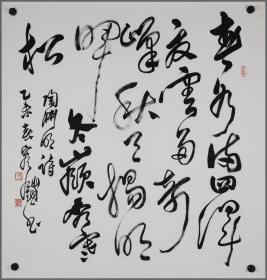 春水满四泽
夏云多奇
峰秋月扬明
晖
冬岭秀寒
松
陶渊明诗
乙未春